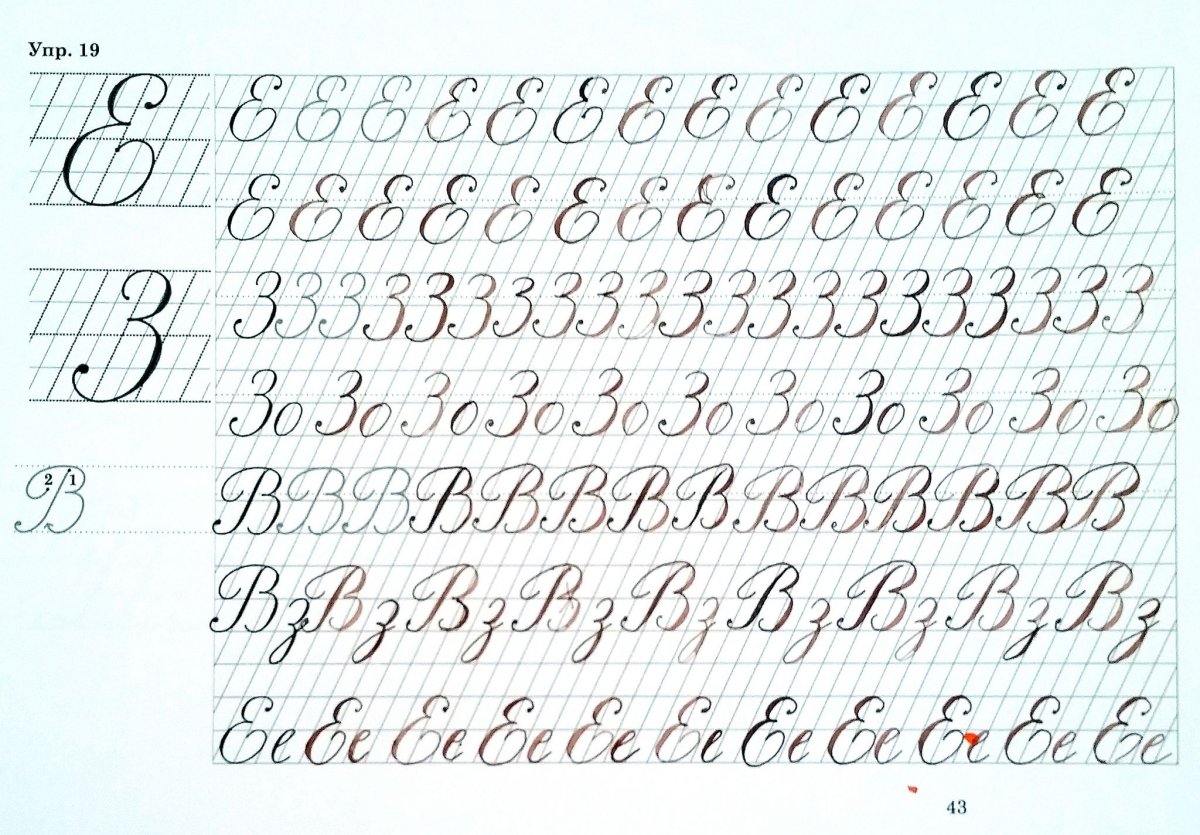 Упр. 19
Е
Е Е Е Е Е Е Е Е Е Е Е Е Е Е
Е Е Е Е Е Е Е Е Е Е Е Е Е Е
З
З З З З З З З З З З З З З З З З З З З З З
Зо Зо Зо Зо Зо Зо Зо Зо Зо Зо Зо
В 2 1
В В В В В В В В В В В В В В
Вз Вз Вз Вз Вз Вз Вз Вз Вз
Ее Ее Ее Ее Ее Ее Ее Ее Ее Ее Ее
43